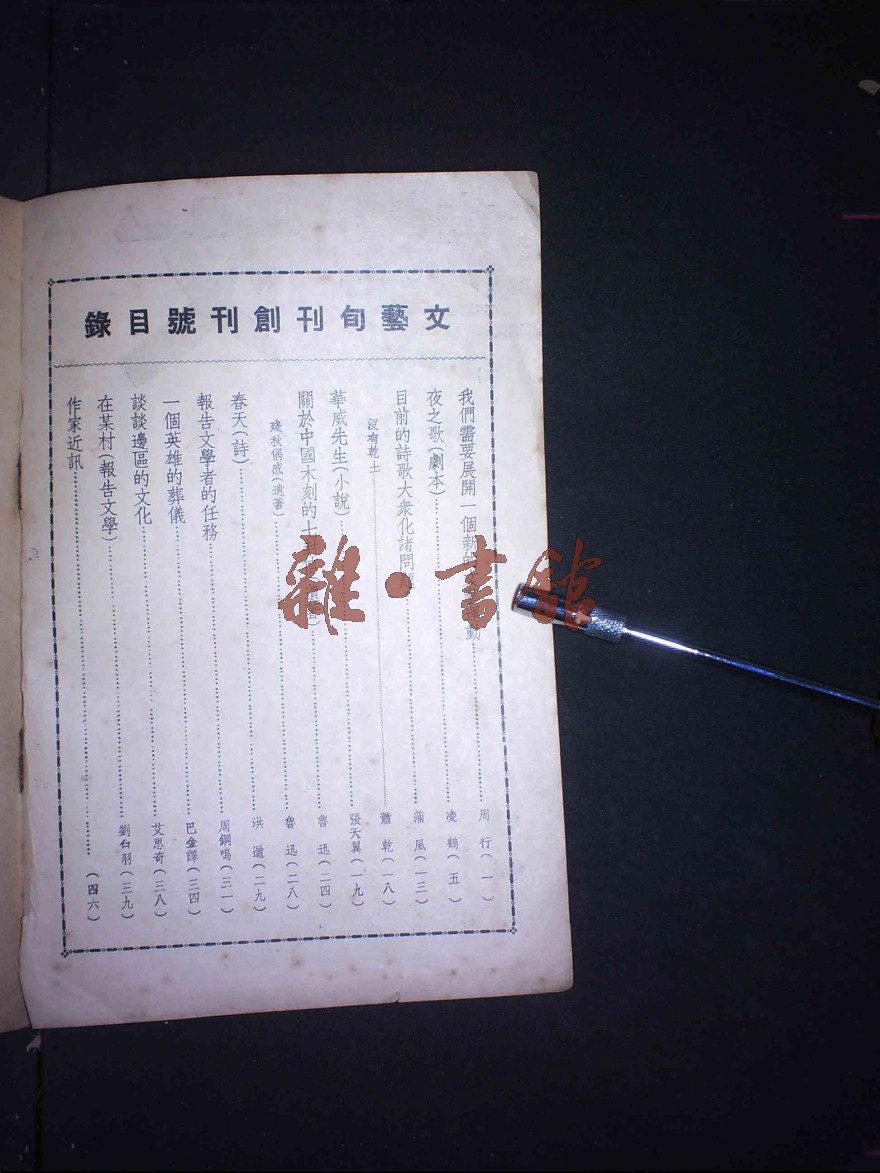 文藝旬刊創刊號目錄
我們需要展開一個新的 動 周行(一)
夜之歌(劇本) 凌鶴(五)
目前的詩歌大衆化諸問題 蒲風(一三)
沒有乾土 蕭乾(一八)
華威先生(小說) 張天翼(一九)
關於中國木刻的 魯迅(二四)
殘秋偶感(遺著) 魯迅(二八)
春天(詩) 洪遒(二九)
報告文學者的任務 周鋼鳴(三一)
一個英雄的葬儀 巴金譯(三四)
談談邊區的文化 艾思奇(三八)
在某村(報告文學) 劉白羽(三九)
作家近訊 (四六)
雜·書館